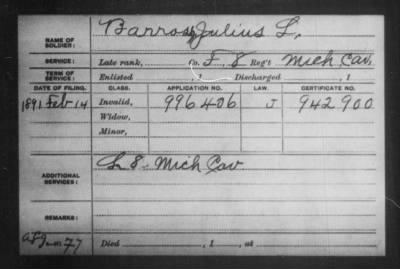 NAME OF SOLDIER: Barross, Julius L.
SERVICE: Late rank, Co. F, 8 Reg't Mich Cav.
TERM OF SERVICE: Enlisted , 1 Discharged , 1
DATE OF FILING. CLASS. APPLICATION NO. LAW. CERTIFICATE NO.
1891 Feb 14 Invalid, 996406 J 942900
Widow,
Minor,
ADDITIONAL SERVICES: L 8 Mich Cav
REMARKS:
Died , 1 , at